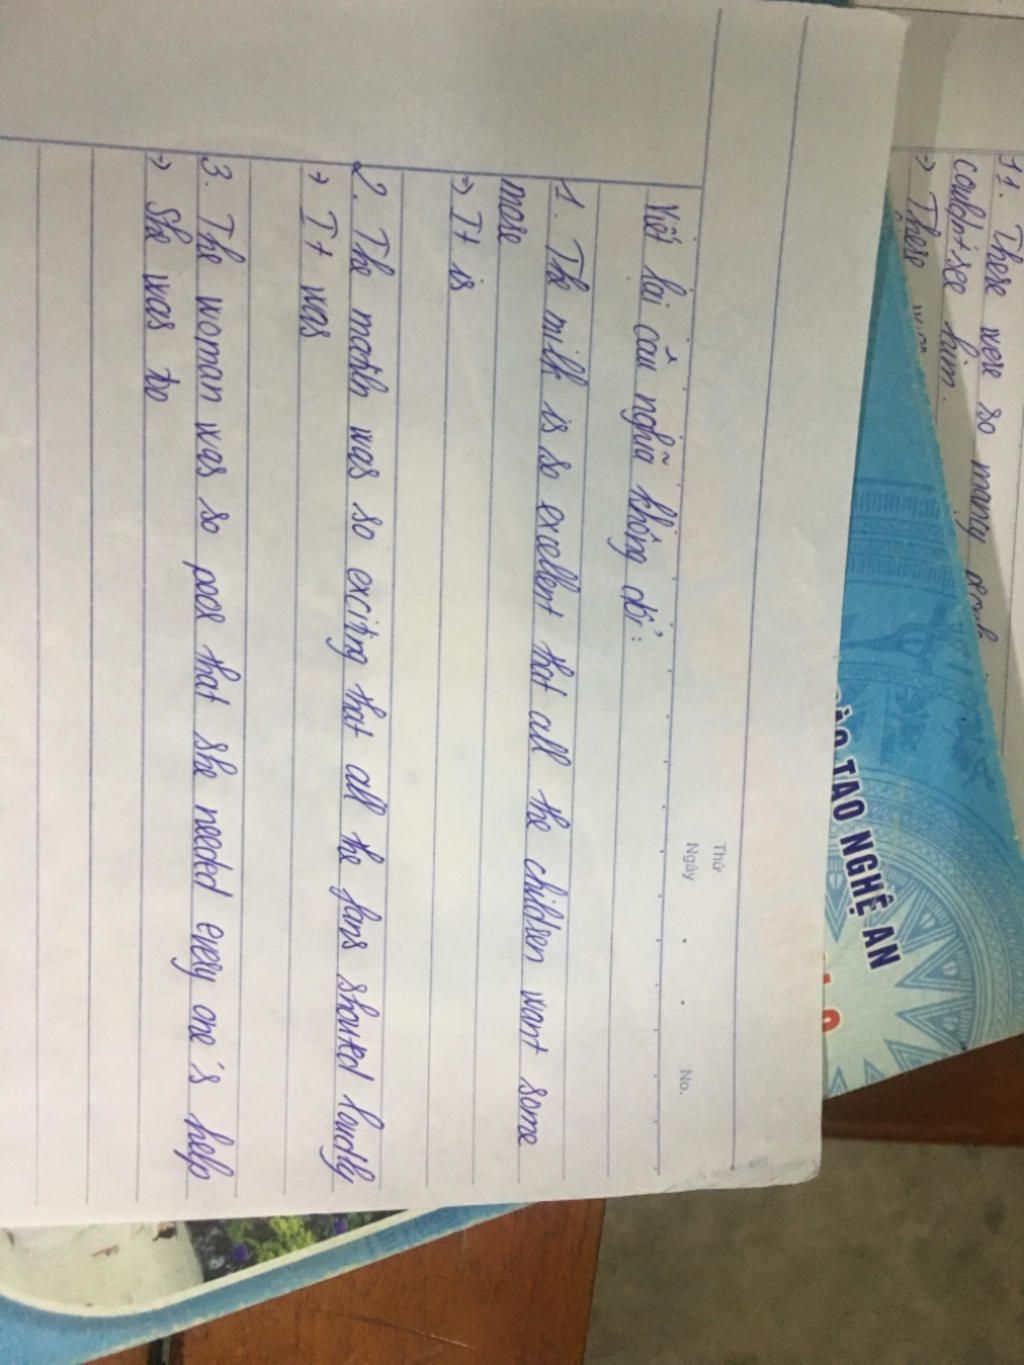 11. There were so many
couldn't see him.
→ There
ĐÀO TẠO NGHỆ AN
Thứ
Ngày
No.
Viết lại câu nghĩa không đổi:
1. The milk is so excellent that all the children want some
more
→ It is
2. The match was so exciting that all the fans shouted loudly
→ It was
3. The woman was so poor that she needed every one's help
→ She was too